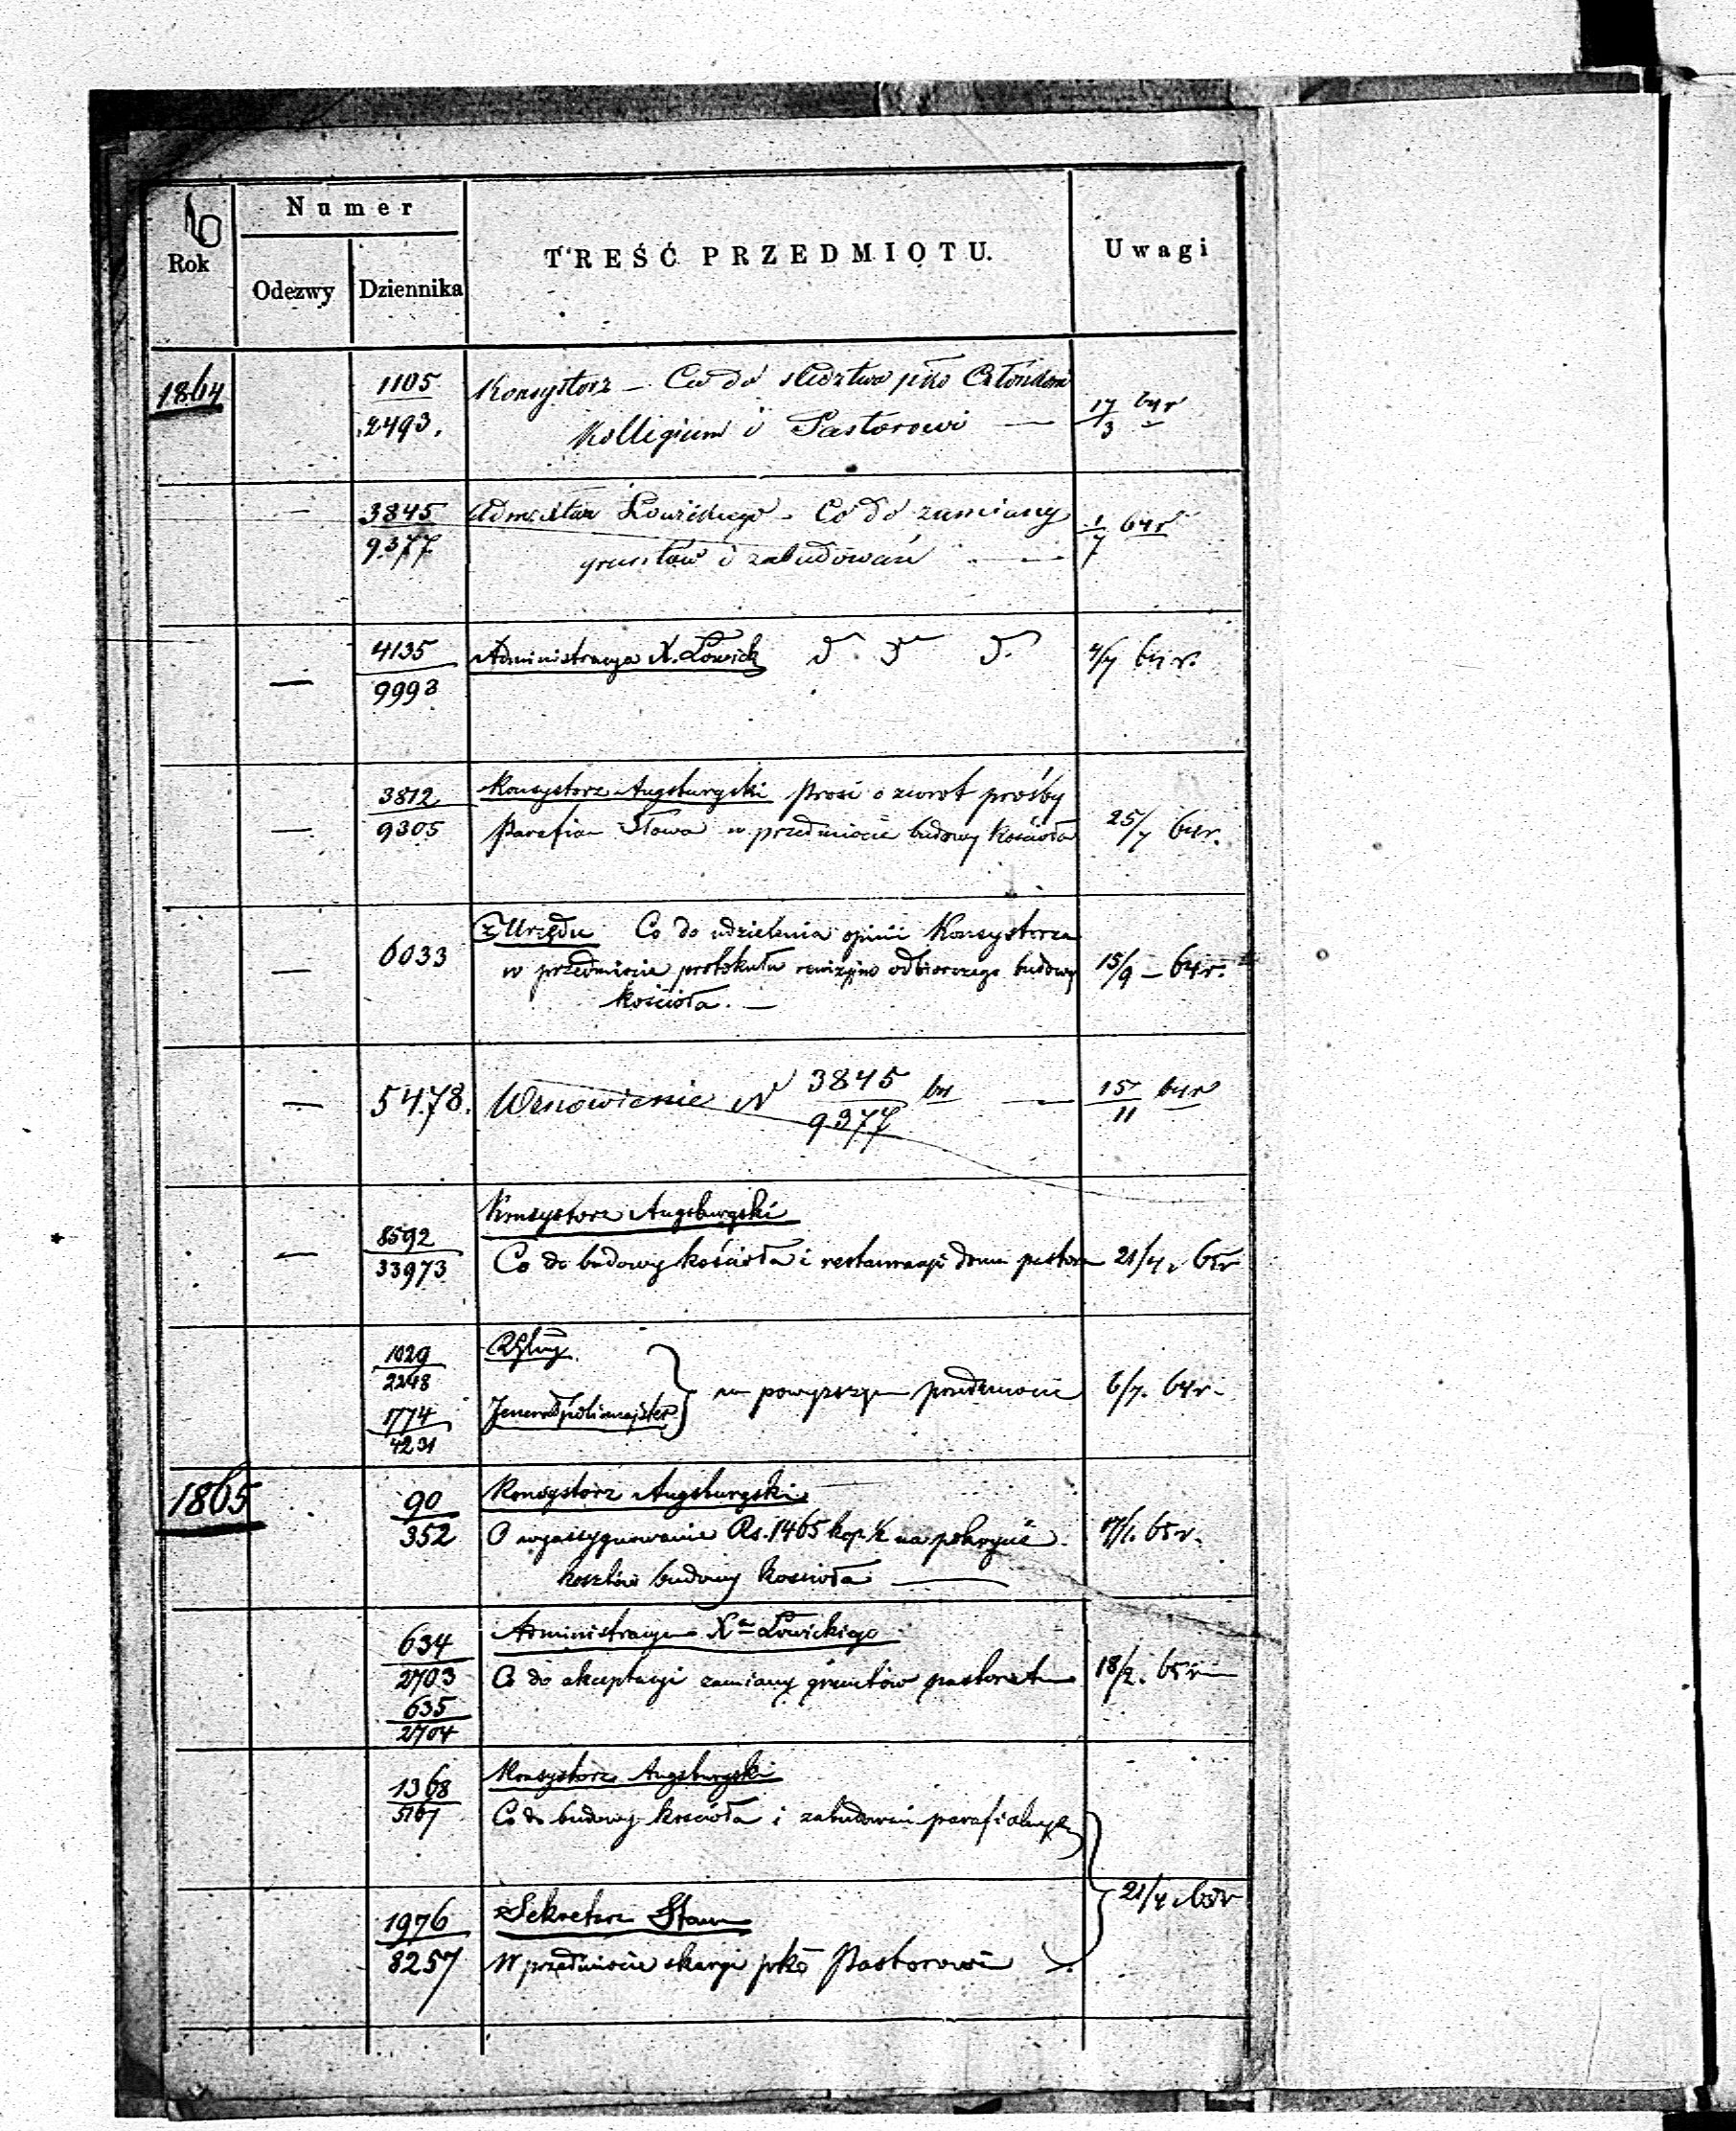 Numer
Rok
Odezwy Dziennika
TREŚĆ PRZEDMIOTU.
Uwagi
1864
1105
2493.
Konsystorz – Co do śledztwa pko Członkom
Kollegium i Pastorowi —
17/3 64r
3845
9377
Xtwa Łowickiego – Co do zamiany
gruntów i zabudowań —
1/7 64r
— 4135
9993
Administracya X. Łowick d. d. d.
64 r.
— 3812
9305
Konsystorz Augsburgski prosi o zwrot prośby
Parafian Iłowa w przedmiocie budowy kościoła
25/7 64r.
— 6033
z Urzędu Co do udzielenia opinii Konsystorza
w przedmiocie protokułu rewizyjno odbiorczego budowy
kościoła. —
15/9 – 64r.
— 5478.
Wznowienie N 3845/9377 64 —
15/11 64r
— 8592
33973
Konsystorz Augsburgski
Co do budowy kościoła i restauracyi domu pastora
21/4. 65r
1029
2248
1774
4231
Jenerał policmajster
w powyższym przedmiocie
6/7. 64r.
1865
90
352
Konsystorz Augsburgski
O wyassygnowanie Rs. 1465 kop. ½ na pokrycie
kosztów budowy kościoła —
17/1. 65r.
634
2703
635
2704
Administracya Xa Łowickiego
Co do akceptacyi zamiany gruntów pastorat
18/2. 65r
1368
5767
Konsystorz Augsburgski
Co do budowy kościoła i zabudowań parafialnych
21/4. 65r
1976
8257
Sekretarz Stanu
W przedmiocie skargi pko Pastorowi